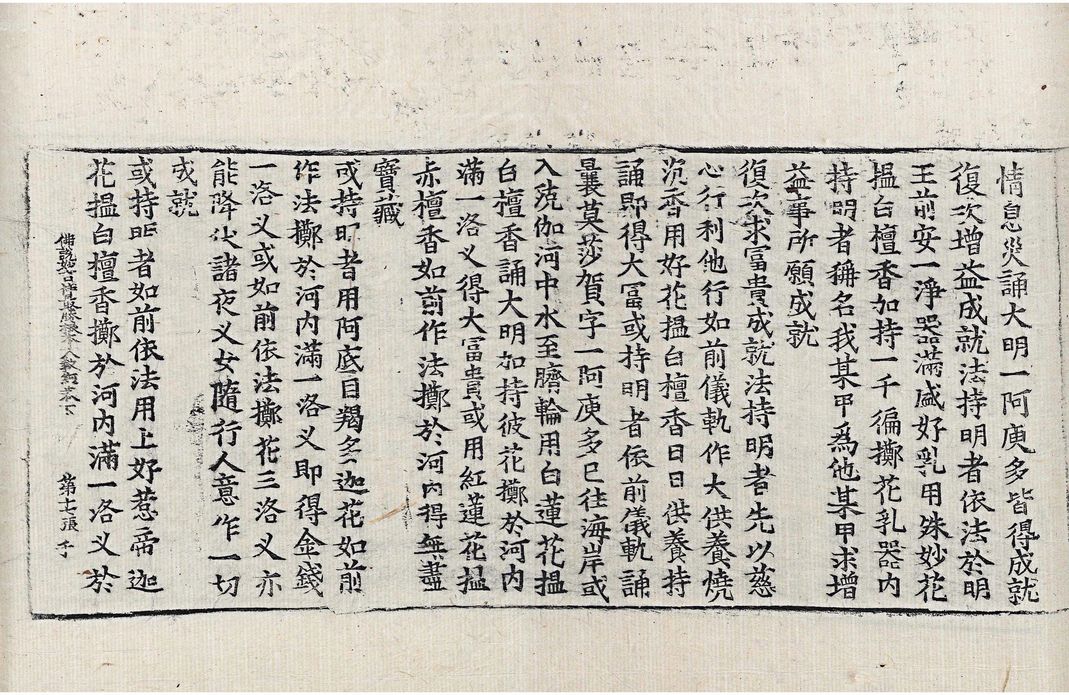 情息災誦大明一阿庾多皆得成就
復次增益成就法持明者依法於明
王前安一淨器滿盛好乳用殊妙花
搵白檀香加持一千徧擲花乳器内
持明者稱名我某甲爲他某甲求增
益事所願成就
復次求冨貴成就法持明者先以慈
心行利他行如前儀軌作大供養燒
沉香用好花搵白檀香日日供養持
誦即得大冨或持明者依前儀軌誦
曩莫莎賀字一阿庾多已往海岸或
入殑伽河中水至臍輪用白蓮花搵
白檀香誦大明加持彼花擲於河内
滿一洛义得大冨貴或用紅蓮花搵
赤檀香如前作法擲於河内得無盡
寶藏
或持明者用阿底目羯多迦花如前
作法擲於河内滿一洛义即得金錢
一洛义或如前依法擲花三洛义亦
能降伏諸夜义女隨行人意作一切
成就
佛說妙吉祥最勝根本大教經卷下 第七張 千
或持明者如前依法用上好惹帝迦
花搵白檀香擲於河内滿一洛义於